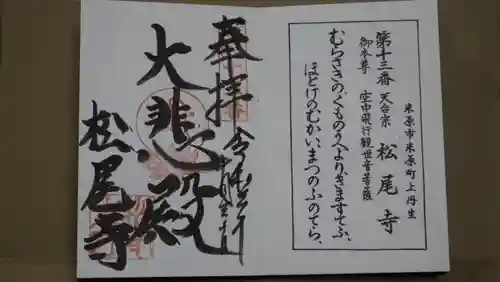 米原市米原町上丹生
第十三番 天台宗 松尾寺
御本尊 空中飛行観世音菩薩
むらさきのくものうへよりきますてふ、
ほとけのむかい、まつのふのてら、
奉拝
大悲殿
松尾寺